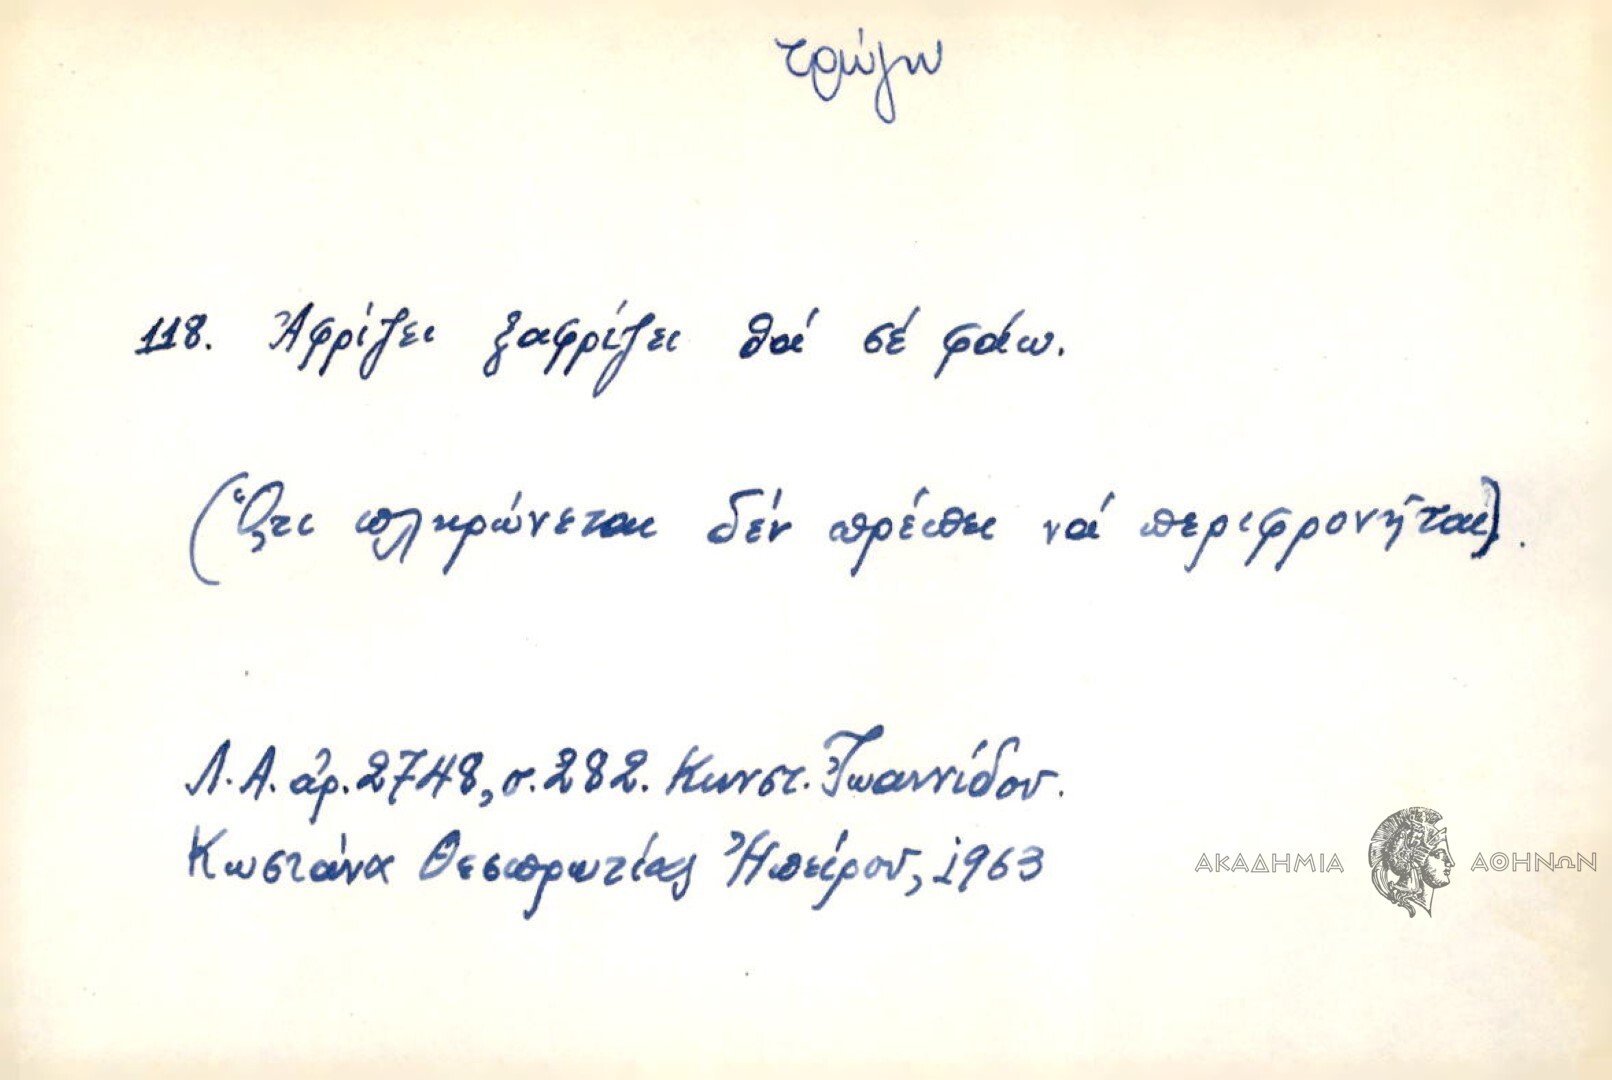 τρώγω
118. Ἀφρίζει ξαφρίζει θά σέ φάω.
(Ὅτι πληρώνεται δέν πρέπει νά περιφρονῆται).
Λ.Α. ἀρ. 2748, σ. 282. Κωνστ. Ἰωαννίδου.
Κωστάνα Θεσπρωτίας Ἠπείρου, 1963
ΑΚΑΔΗΜΙΑ ΑΘΗΝΩΝ